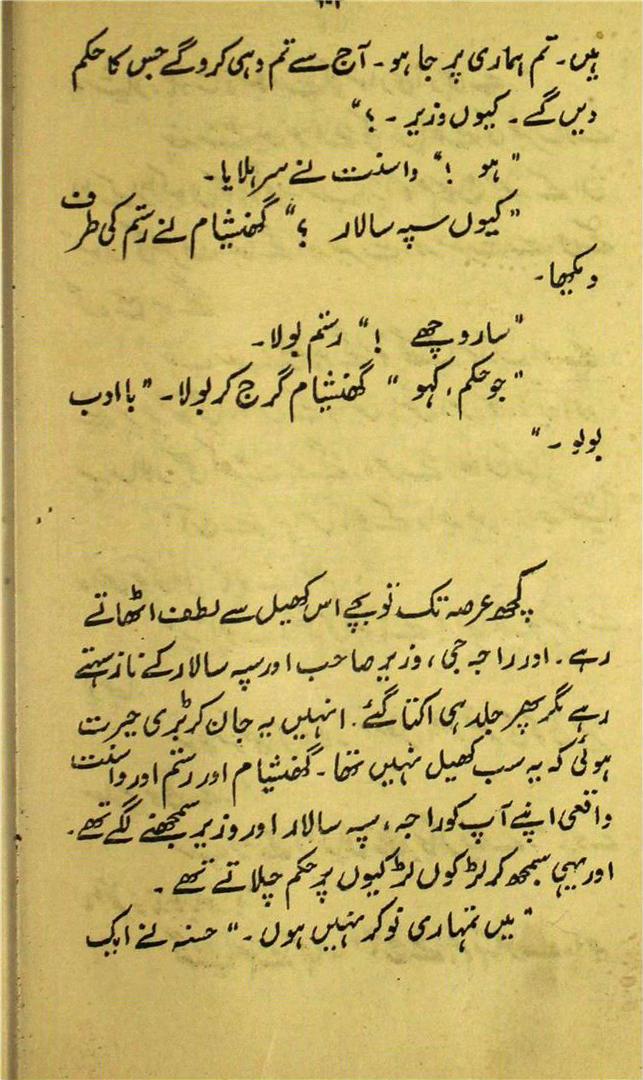 ہیں۔ تم ہماری پرجا ہو۔ آج سے تم وہی کرو گے جس کا حکم
دیں گے۔ کیوں وزیر۔ ؟"
"ہو !" واسنت نے سر ہلایا۔
"کیوں سپہ سالار ؟" گھنشیام نے رستم کی طرف
دیکھا۔
"ساروچھے !" رستم بولا۔
"جو حکم، کہو" گھنشیام گرج کر بولا۔ "با ادب
بولو۔"
کچھ عرصہ تک تو بچے اس کھیل سے لطف اٹھاتے
رہے۔ اور راجہ جی، وزیر صاحب اور سپہ سالار کے ناز سہتے
رہے مگر پھر جلد ہی اکتا گئے۔ انہیں یہ جان کر بڑی حیرت
ہوئی کہ یہ سب کھیل نہیں تھا۔ گھنشیام اور رستم اور واسنت
واقعی اپنے آپ کو راجہ، سپہ سالار اور وزیر سمجھنے لگے تھے۔
اور یہی سمجھ کر لڑکوں لڑکیوں پر حکم چلاتے تھے۔
"میں تمہاری نوکر نہیں ہوں۔" حسنہ نے ایک